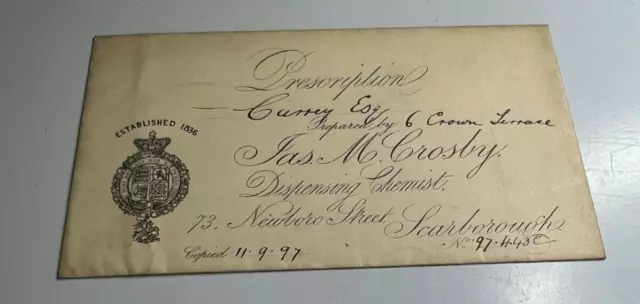 Prescription
Currey Esq
ESTABLISHED 1836
Prepared by 6 Crown Terrace
Jas. M. Crosby,
Dispensing Chemist,
73, Newboro Street, Scarborough.
Copied 11.9.97
No. 97.443C